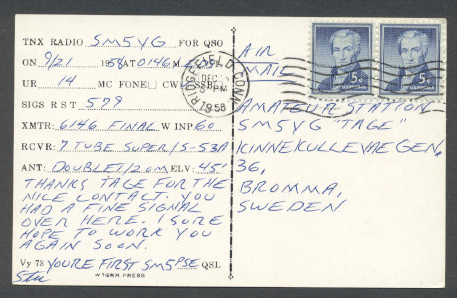 TNX RADIO SM5YG FOR QSO
ON 9/21 1958 AT 0146 M
UR 14 MC FONE CW SSB
SIGS R S T 579
XMTR: 6146 FINAL W INP 60
RCVR: 7 TUBE SUPER/S-53A
ANT: DOUBLET/20M ELV: 45'
THANKS TAGE FOR THE
NICE CONTACT. YOU
HAD A FINE SIGNAL
OVER HERE. I SURE
HOPE TO WORK YOU
AGAIN SOON.
Vy 73 YOU'RE FIRST SM5 PSE QSL
Stu
PRESS
AIR
MAIL
RIDGEFIELD CONN.
DEC
PM
1958
5¢
5¢
AMATEUR STATION
SM5YG "TAGE"
KINNEKULLEVAEGEN,
36,
BROMMA,
SWEDEN